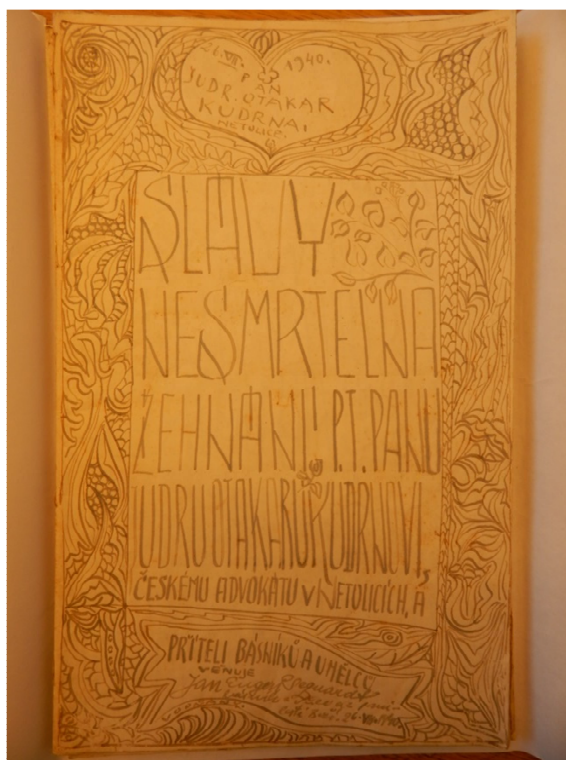 26.VII. 1940.
PAN
JUDR. OTAKAR
KUDRNA,
NETOLICE.
SLÁVY
NESMRTELNÁ
ŽEHNÁNÍ! P.T. PANU
JUDRU OTAKARU KUDRNOVI,
ČESKÉMU ADVOKÁTU V NETOLICÍCH, A
PŘÍTELI BÁSNÍKŮ A UMĚLCŮ
VĚNUJE
Jan
26. VII. 1940.